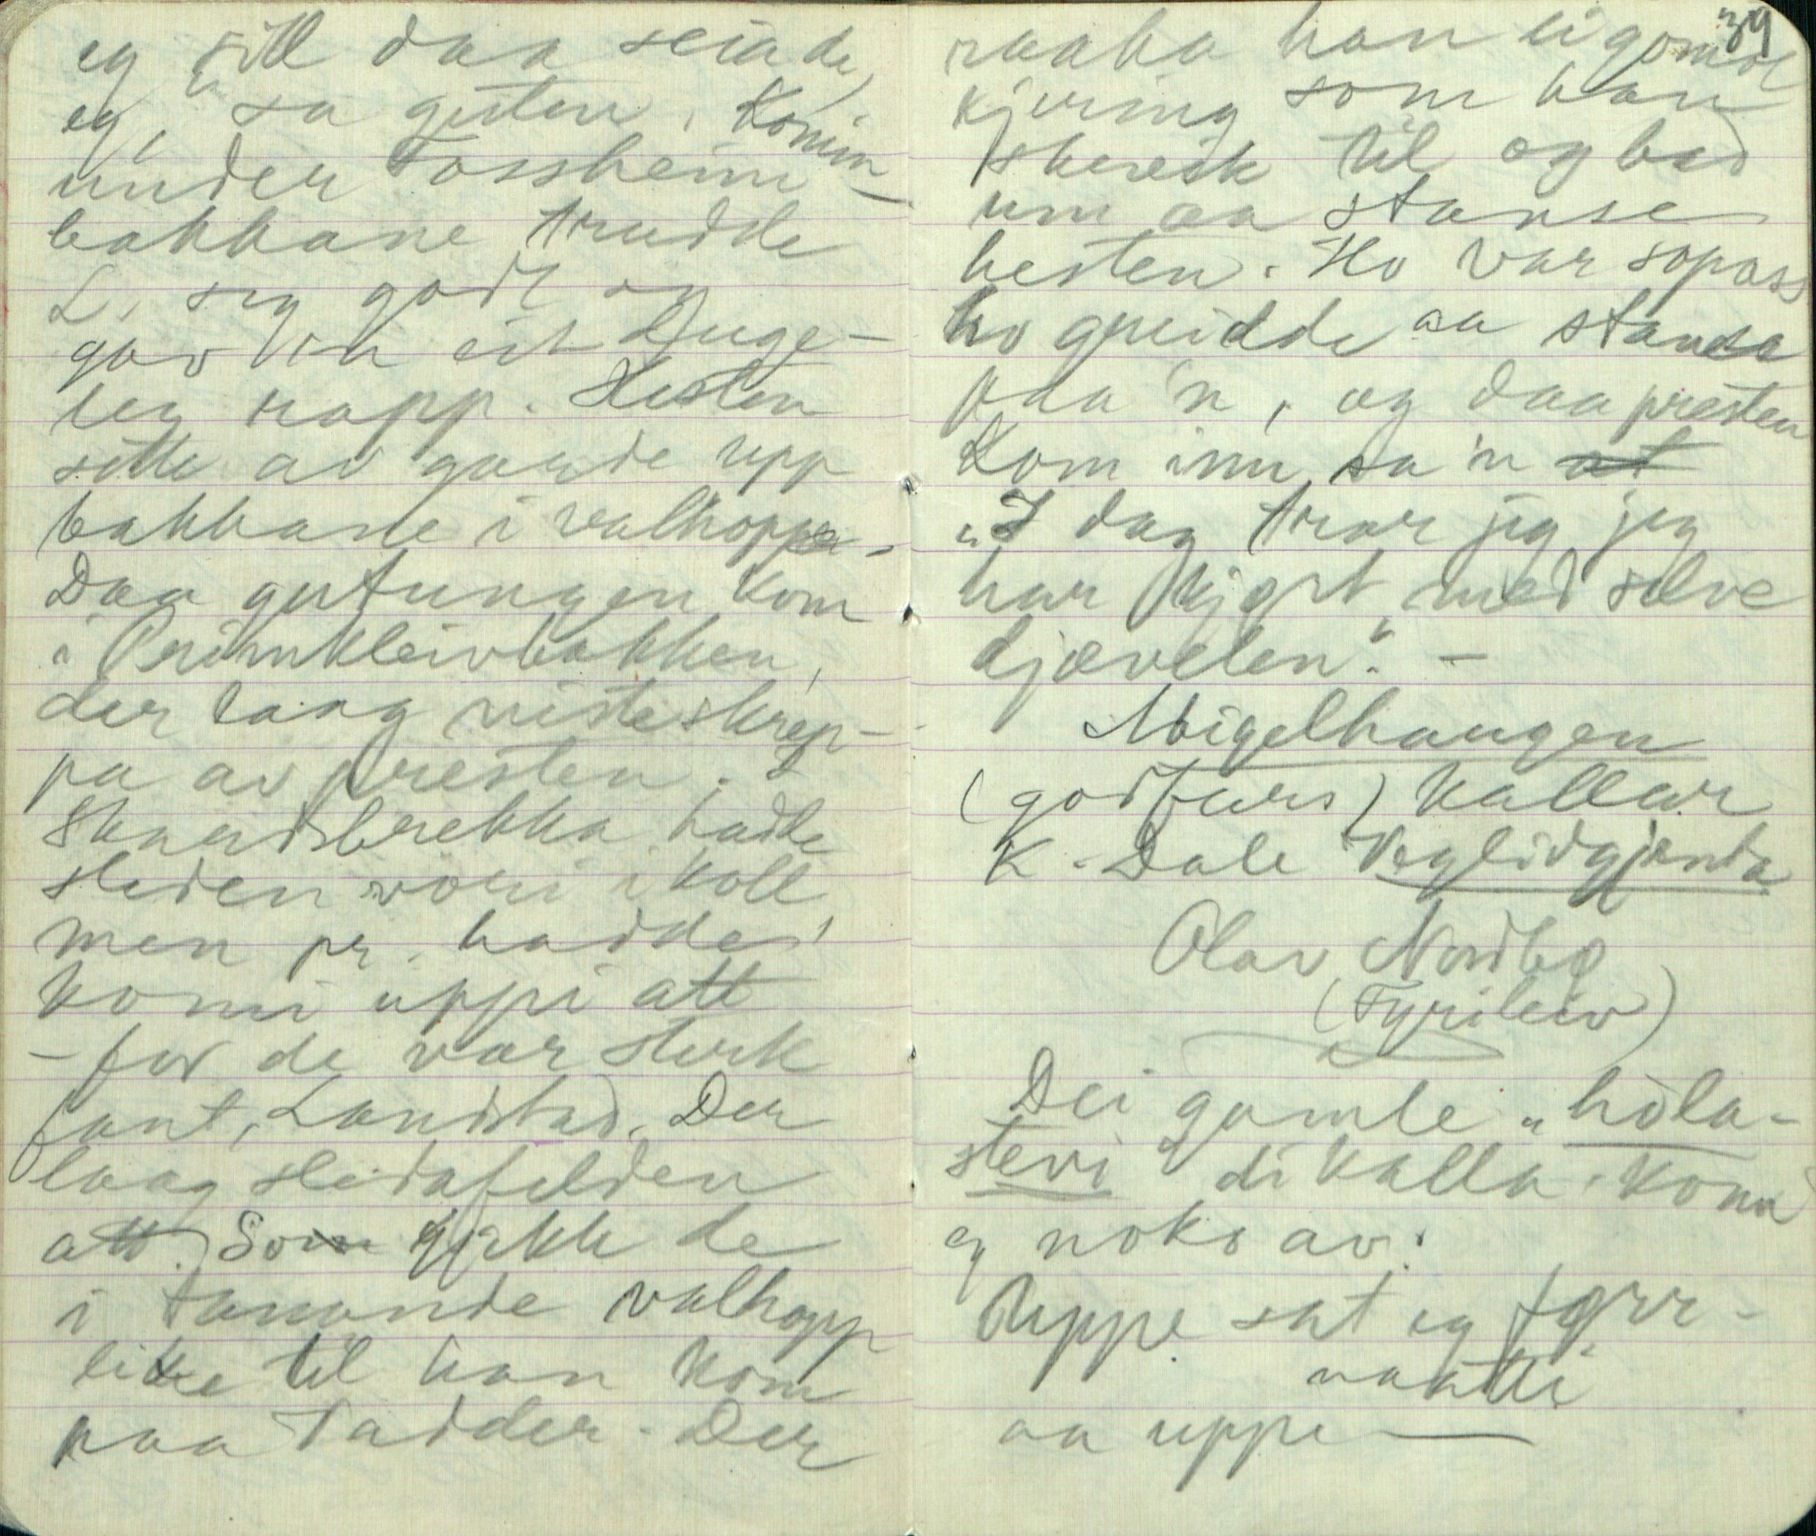 eg vill daa seia de,
eg, sa guten. Komin
under Fossheim-
bakkane trudde
L. seg godt og
gav 'n eit duge-
leg rapp. Hesten
sette av garde upp
bakkane i valhopp.
Daa gutungen kom
i bakken,
der laag viste skrep-
pa av presten. I
Skardsbrekka hadde
sleden vori i koll,
men pr. hadde
komi uppi att
- for de var sterk
fant, Landstad. Der
laag sledafelden
att. So gjekk de
i tanande valhopp
like til han kom
paa Tadder. Der
39
raaka han ei gomol
kjering som han
skreik til og bad
um aa stanse
hesten. Ho var sopass
ho greidde aa stanse
paa 'n, og daa presten
kom inn sa 'n at
"I dag tror jeg jeg
har kjørt med selve
djævelen". -
Migelhaugen
(godfars) kallar
K. Dale Veglidgjenta
Olav Nordbø
(Tyrileiv)
Dei gamle "hola-
stevi" di kalla. Kona
eg noko av:
Uppe sat eg fyrr-
naatti
aa uppe